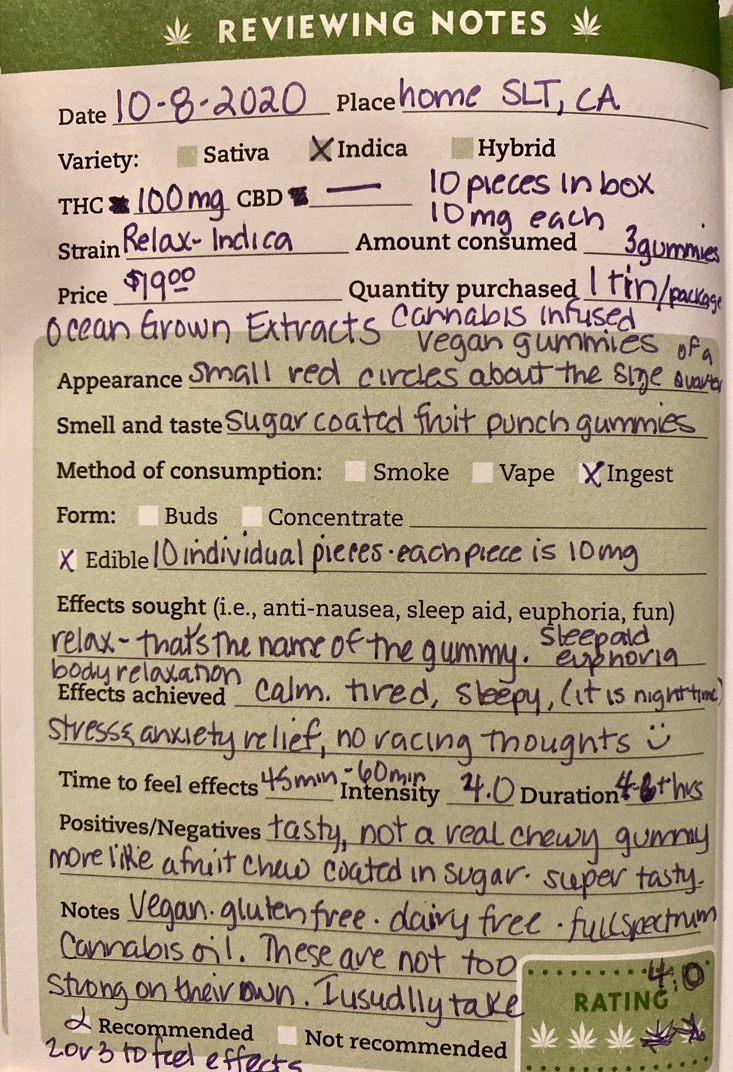 REVIEWING NOTES
Date 10-8-2020 Place home SLT, CA
Variety: Sativa X Indica Hybrid
10 pieces in box
THC 100mg CBD — 10 mg each
Strain Relax-Indica Amount consumed 3 gummies
Price $19.00 Quantity purchased 1 tin/package
Ocean Grown Extracts Cannabis infused
vegan gummies
Appearance small red circles about the size of a quarter
Smell and taste Sugar coated fruit punch gummies
Method of consumption: Smoke Vape X Ingest
Form: Buds Concentrate
X Edible 10 individual pieces · each piece is 10mg
Effects sought (i.e., anti-nausea, sleep aid, euphoria, fun)
relax - that's the name of the gummy. Sleep aid
euphoria
body relaxation
Effects achieved calm. tired, sleepy, (it is nighttime)
stress & anxiety relief, no racing thoughts :)
Time to feel effects 45min-60min Intensity 4.0 Duration hrs
Positives/Negatives tasty, not a real chewy gummy
more like a fruit chew coated in sugar. super tasty.
Notes Vegan · gluten free · dairy free · full spectrum
Cannabis oil. These are not too
strong on their own. I usually take
4.0
RATING
Recommended Not recommended
2 or 3 to feel effects